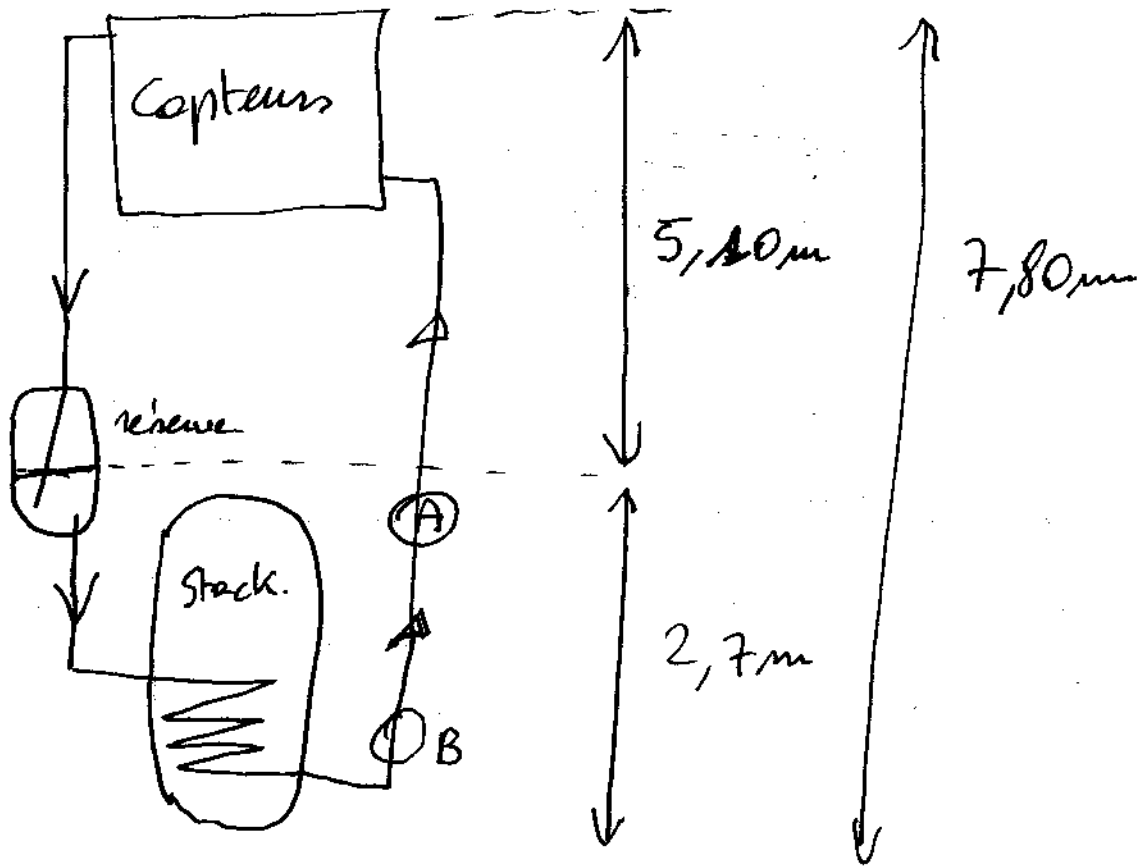 Capteurs
5,10m
7,80m
réserve
A
Stock.
2,7m
B